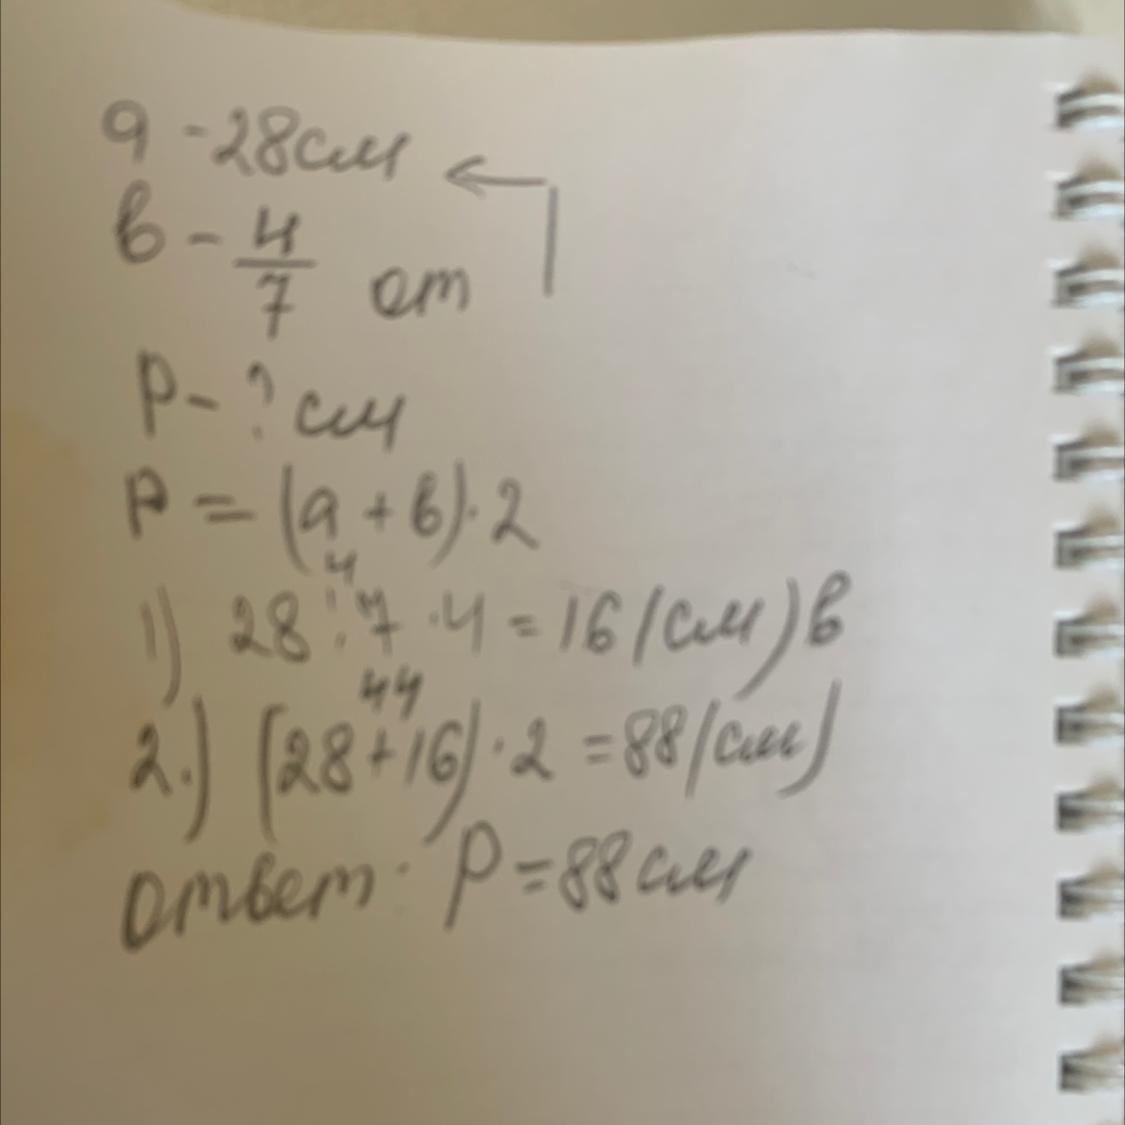 a - 28см
в - 4/7 от
P - ? см
P = (a + в) · 2
4
1) 28 : 7 · 4 = 16 (см) в
44
2.) (28 + 16) · 2 = 88 (см)
ответ: P = 88 см